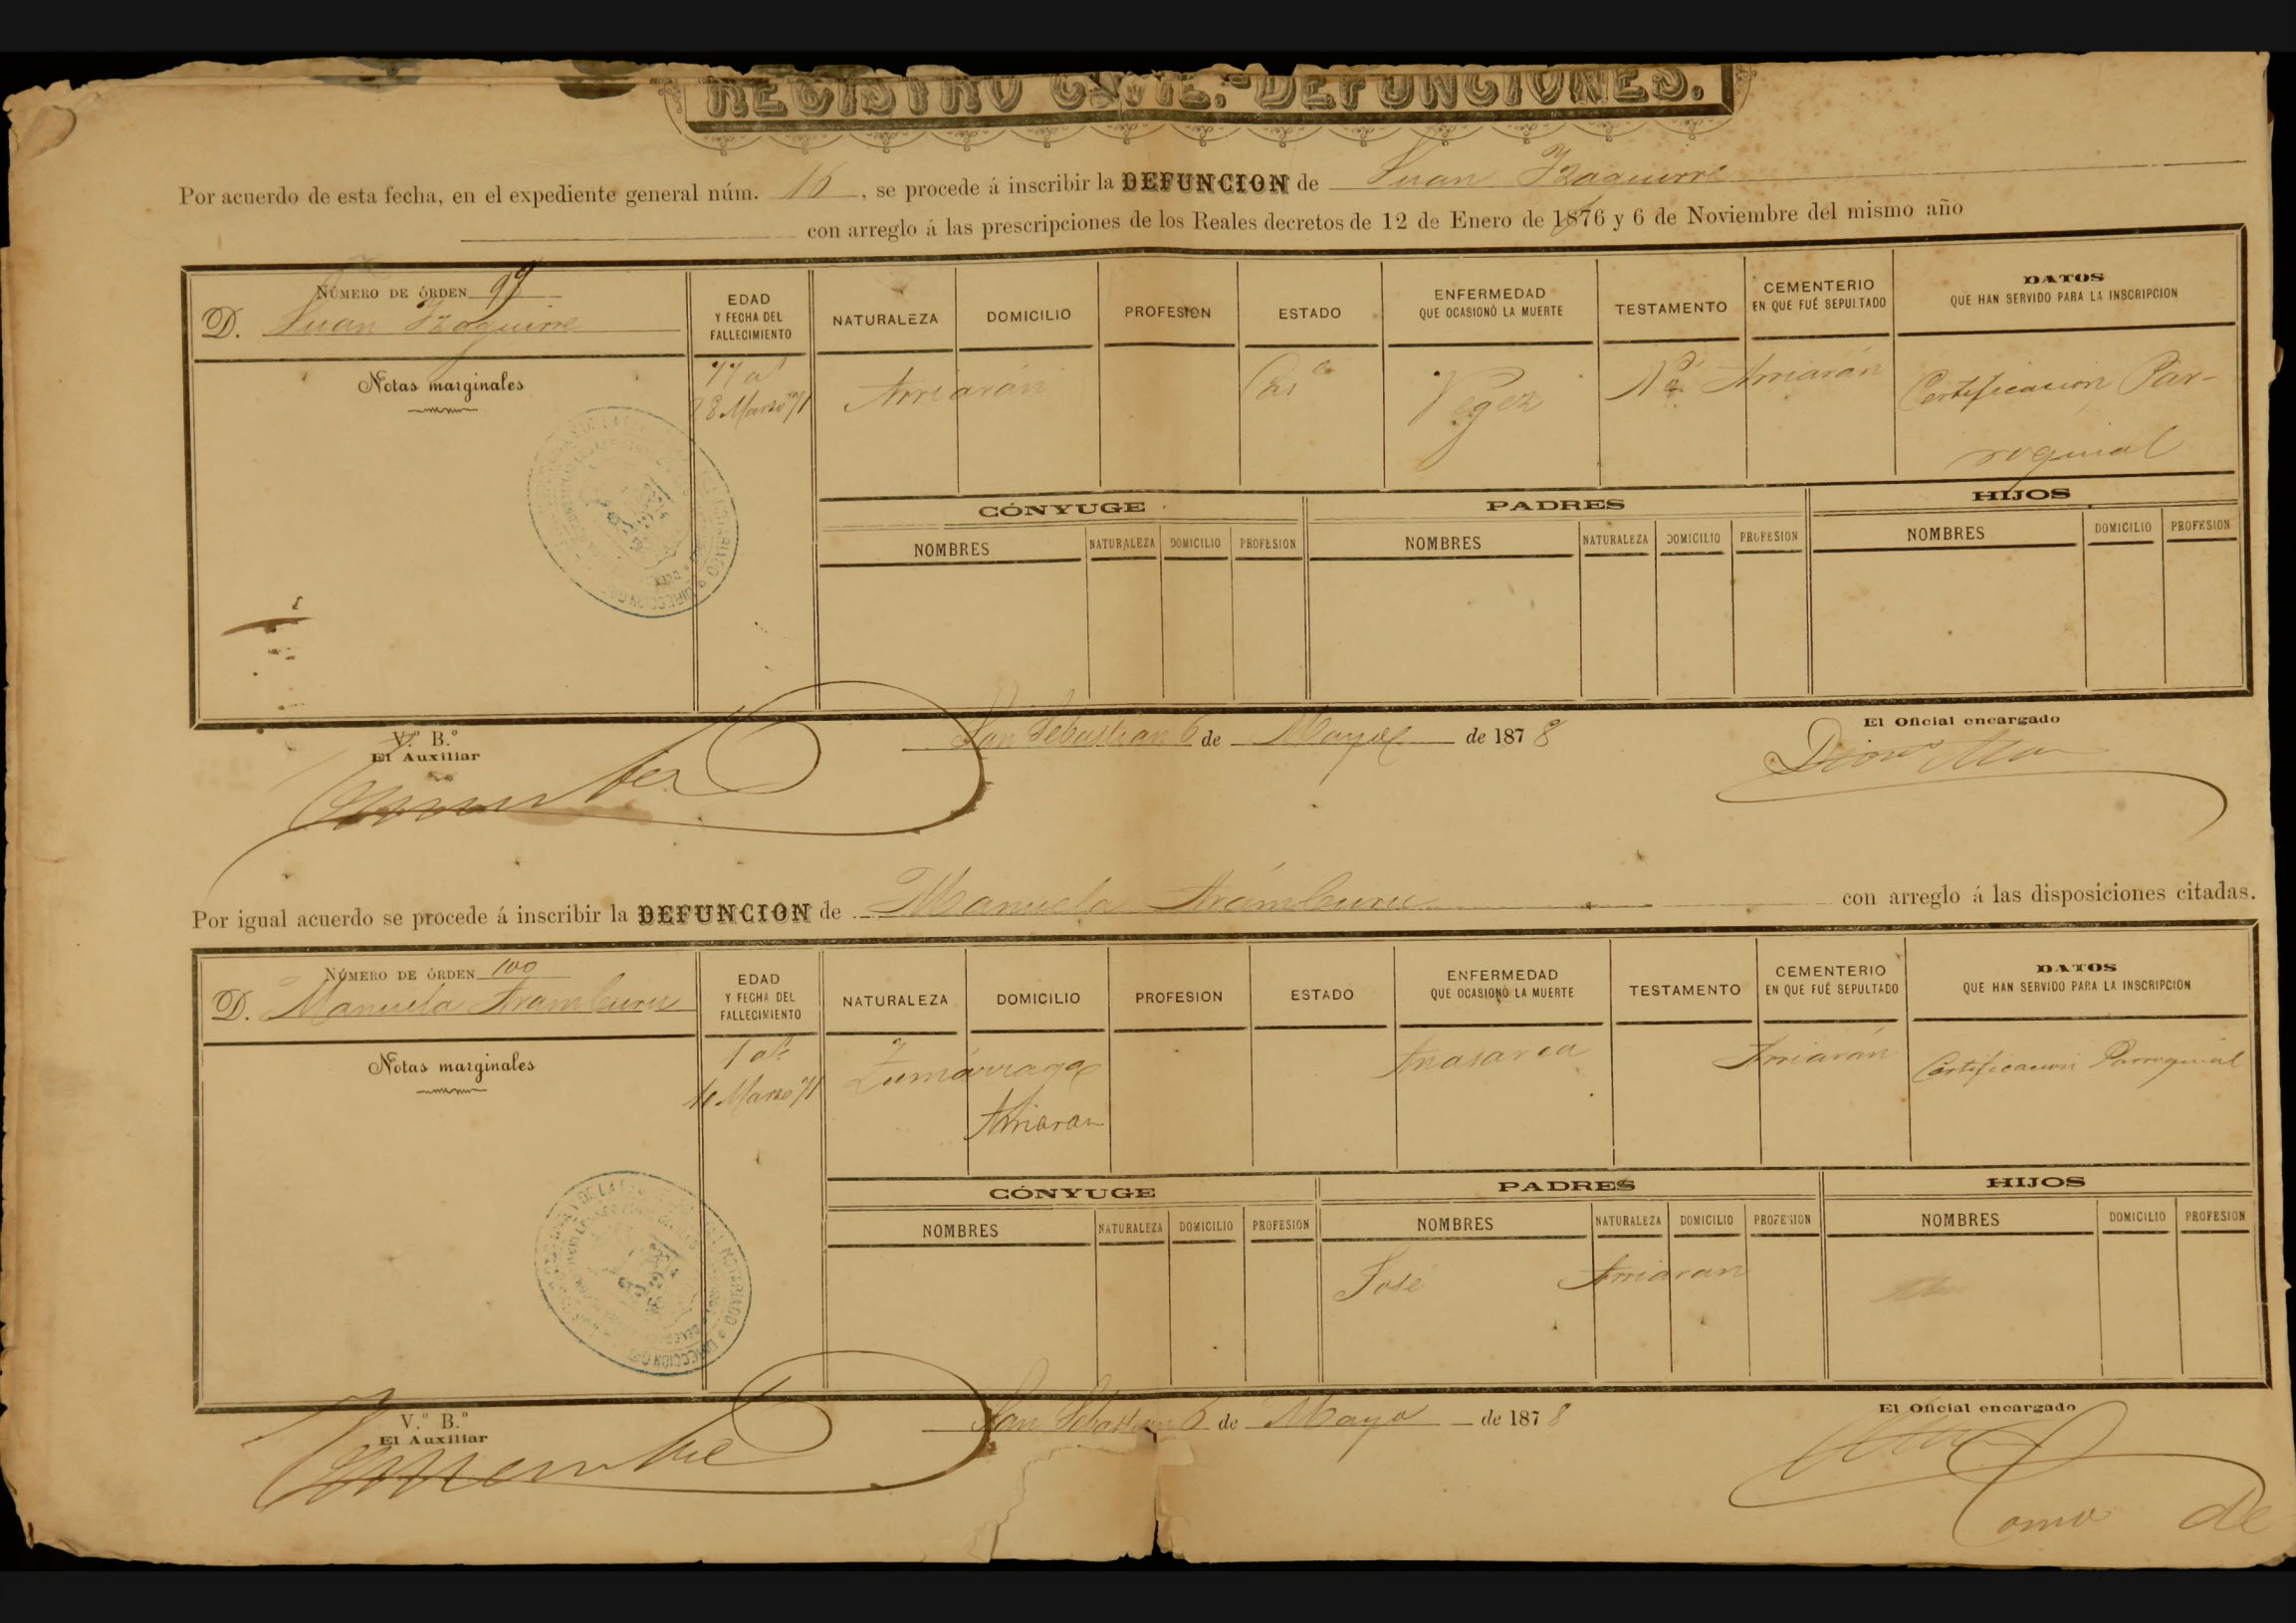 REGISTRO CIVIL.-DEFUNCIONES.
Por acuerdo de esta fecha, en el expediente general núm. 16, se procede á inscribir la DEFUNCION de Juan Yzaguirre
con arreglo á las prescripciones de los Reales decretos de 12 de Enero de 1876 y 6 de Noviembre del mismo año
NÚMERO DE ÓRDEN 99
D. Juan Yzaguirre
Notas marginales
EDAD
Y FECHA DEL
FALLECIMIENTO
NATURALEZA DOMICILIO PROFESION ESTADO
ENFERMEDAD
QUE OCASIONÓ LA MUERTE
TESTAMENTO
CEMENTERIO
EN QUE FUÉ SEPULTADO
DATOS
QUE HAN SERVIDO PARA LA INSCRIPCION
77 a
28 Marzo 71
Arriarán
Vegez
Arriarán
Certificacion Par-
roquial
CÓNYUGE PADRES HIJOS
NOMBRES NATURALEZA DOMICILIO PROFESION NOMBRES NATURALEZA DOMICILIO PROFESION NOMBRES DOMICILIO PROFESION
V.º B.º
El Auxiliar
San Sebastian 6 de Mayo de 1878
El Oficial encargado
Por igual acuerdo se procede á inscribir la DEFUNCION de Manuela Arámburu con arreglo á las disposiciones citadas.
NÚMERO DE ÓRDEN 100
D. Manuela Aramburu
Notas marginales
EDAD
Y FECHA DEL
FALLECIMIENTO
NATURALEZA DOMICILIO PROFESION ESTADO
ENFERMEDAD
QUE OCASIONÓ LA MUERTE
TESTAMENTO
CEMENTERIO
EN QUE FUÉ SEPULTADO
DATOS
QUE HAN SERVIDO PARA LA INSCRIPCION
Marzo 71
Zumárraga
Arriaran
Anasarca
Arriarán
Certificacion Parroquial
CÓNYUGE PADRES HIJOS
NOMBRES NATURALEZA DOMICILIO PROFESION NOMBRES NATURALEZA DOMICILIO PROFESION NOMBRES DOMICILIO PROFESION
José Arriaran
V.º B.º
El Auxiliar
San Sebastian 6 de Mayo de 1878
El Oficial encargado
Como de